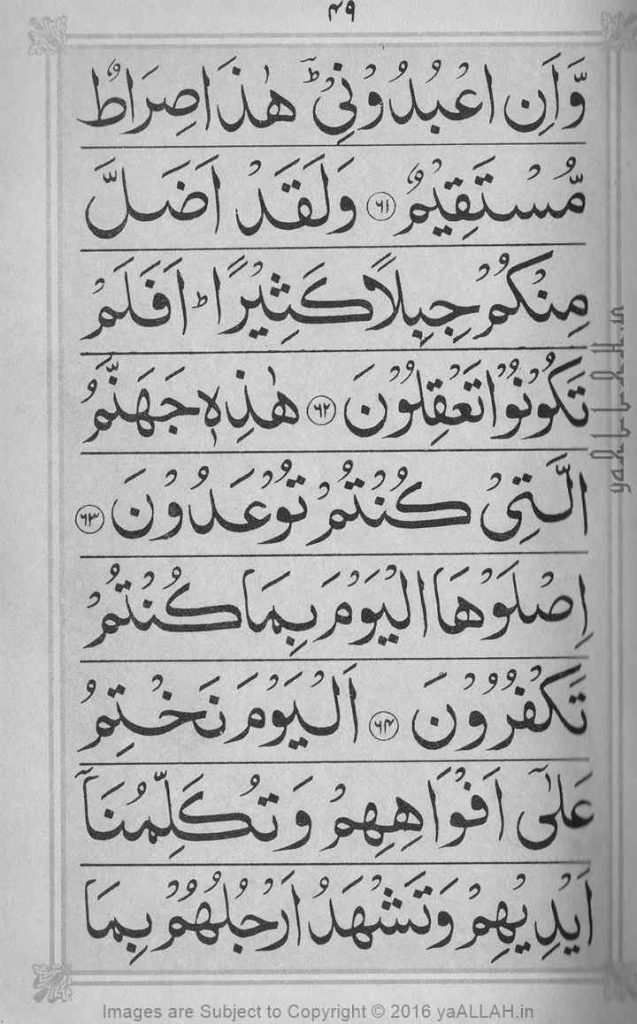 ۴۹
وَّاَنِ اعْبُدُوْنِیْ ؕ هٰذَا صِرَاطٌ
مُّسْتَقِیْمٌ ۶۱ وَلَقَدْ اَضَلَّ
مِنْكُمْ جِبِلًّا كَثِیْرًا ؕ اَفَلَمْ
تَكُوْنُوْا تَعْقِلُوْنَ ۶۲ هٰذِهٖ جَهَنَّمُ
الَّتِیْ كُنْتُمْ تُوْعَدُوْنَ ۶۳
اِصْلَوْهَا الْیَوْمَ بِمَا كُنْتُمْ
تَكْفُرُوْنَ ۶۴ اَلْیَوْمَ نَخْتِمُ
عَلٰۤی اَفْوَاهِهِمْ وَتُكَلِّمُنَاۤ
اَیْدِیْهِمْ وَتَشْهَدُ اَرْجُلُهُمْ بِمَا
yaALLAH.in
Images are Subject to Copyright © 2016 yaALLAH.in